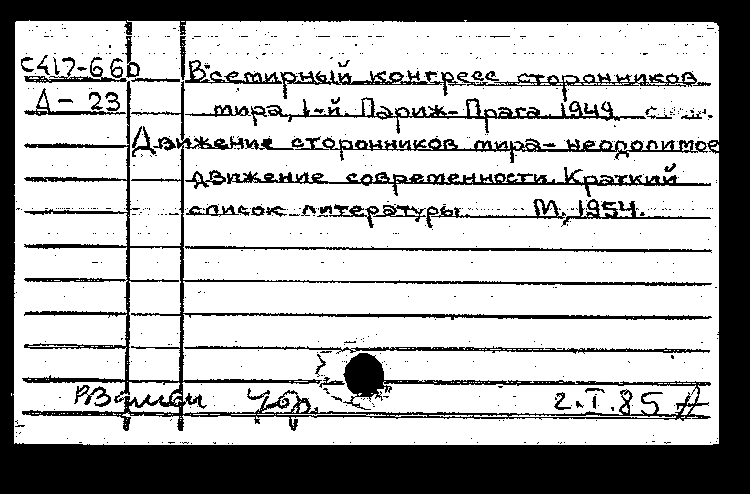 С417-660 Всемирный конгресс сторонников
Д-23 мира, 1-й. Париж-Прага. 1949
Движение сторонников мира - неодолимое
движение современности. Краткий
список литературы. М., 1954.
2.I.85